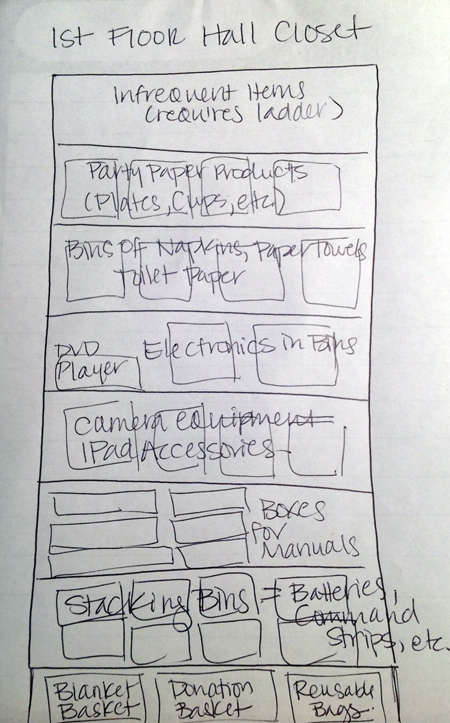 1st Floor Hall Closet
Infrequent Items
(requires ladder)
Party Paper Products
(Plates, Cups, etc.)
Bins of Napkins, Paper Towels
Toilet Paper
DVD
Player
Electronics in Bins
Camera equipment
IPad Accessories
Boxes
for
Manuals
Stacking Bins = Batteries,
Command
Strips, etc.
Blanket
Basket
Donation
Basket
Reusable
Bags